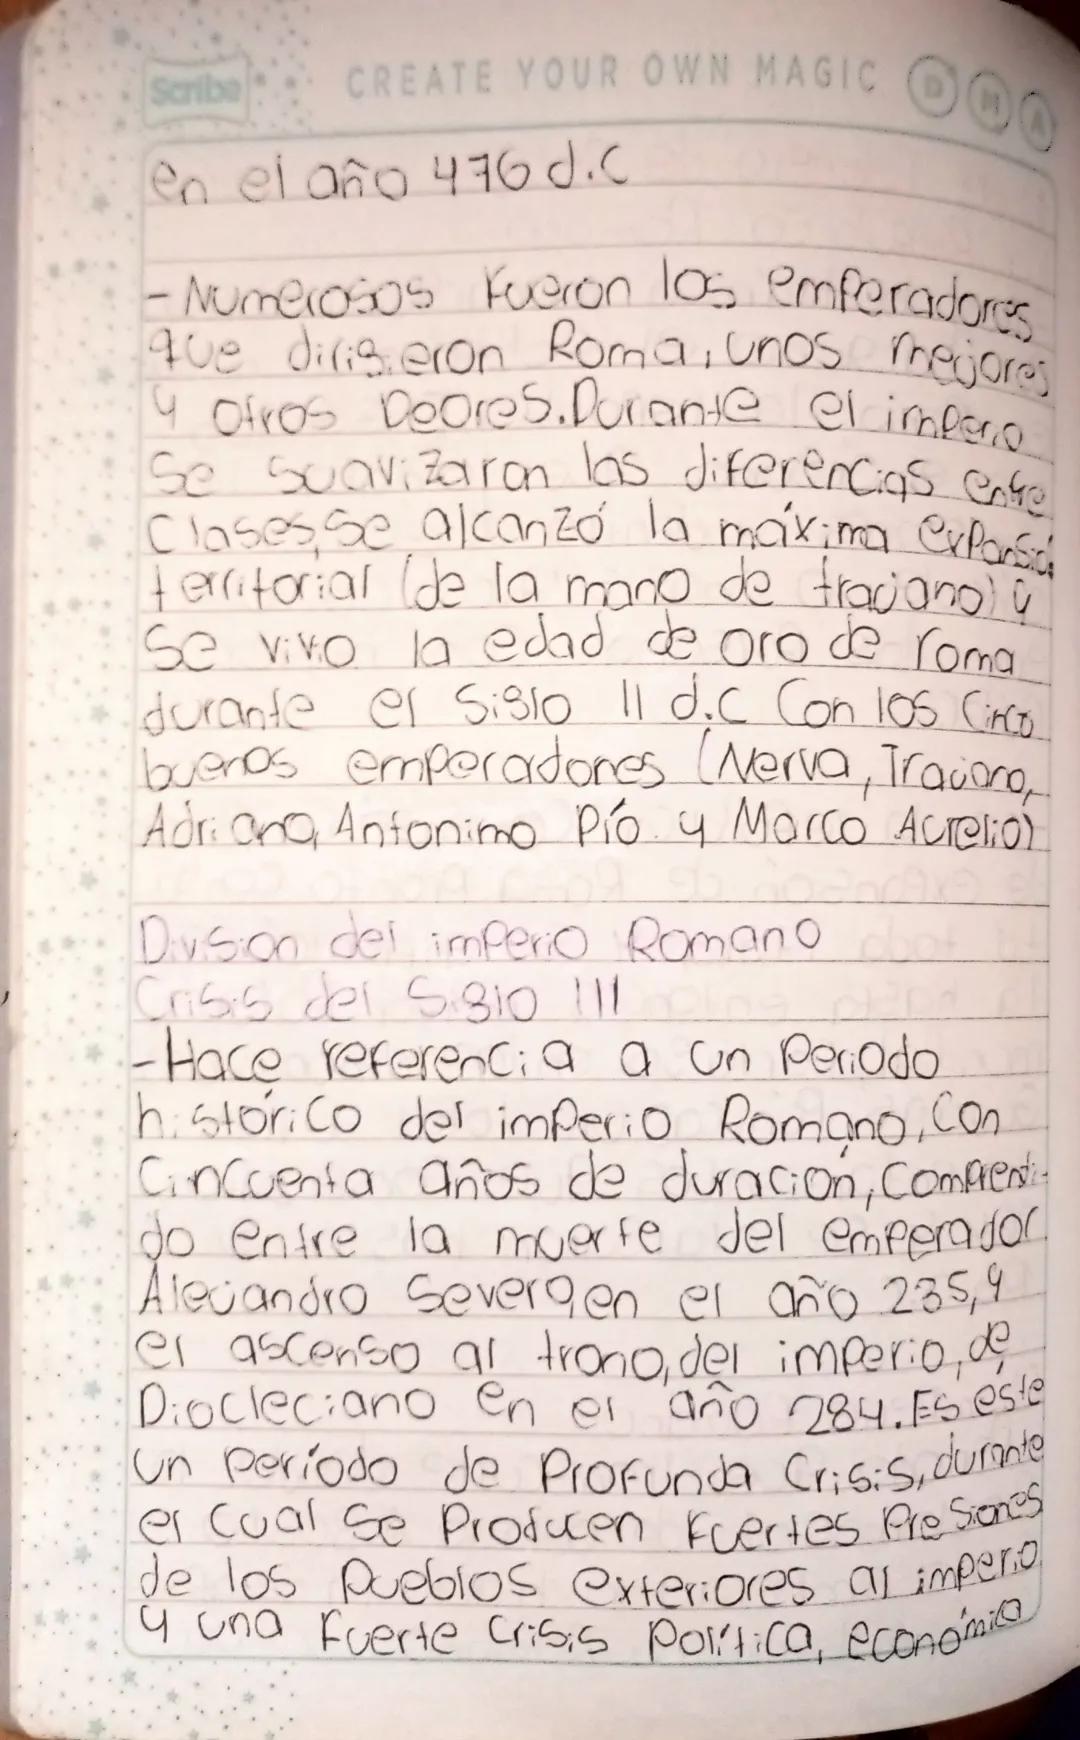 Scribe
CREATE YOUR OWN MAGIC D M A
en el año 476 d.c
- Numerosos fueron los emperadores
que dirigieron Roma, unos mejores
y otros peores. Durante el imperio
se suavizaron las diferencias entre
clases, se alcanzó la máxima
territorial (de la mano de trajano) y
se vivio la edad de oro de roma
durante el siglo II d.c Con los cinco
buenos emperadores (Nerva, Trajano,
Adriano, Antonimo Pío y Marco Aurelio)
Division del imperio Romano
Crisis del Siglo III
- Hace referencia a un Periodo
histórico del imperio Romano, Con
Cincuenta años de duración, Comprendi-
do entre la muerte del emperador
Alejandro en el año 235, y
el ascenso al trono, del imperio, de
Diocleciano en el año 284. Es este
un período de Profunda Crisis, durante
el Cual se Producen Fuertes Presiones
de los Pueblos exteriores al imperio
y una Fuerte Crisis Política, económica